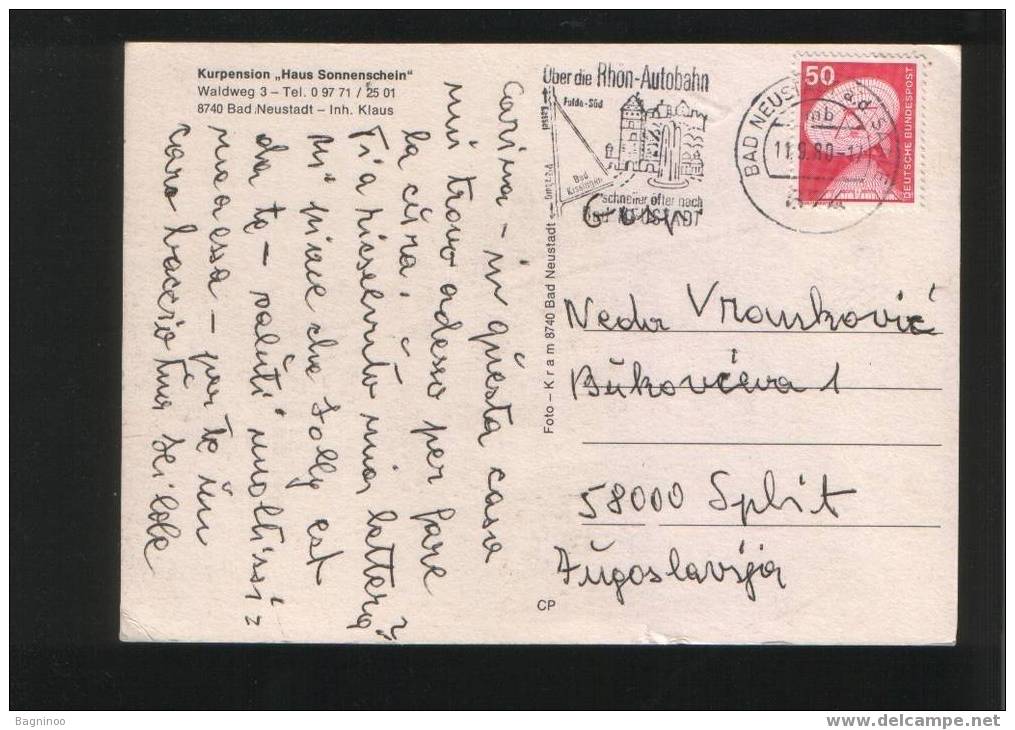 Kurpension „Haus Sonnenschein“
Waldweg 3 – Tel. 0 97 71 / 25 01
8740 Bad Neustadt – Inh. Klaus
Carina – in questa casa
mi trovo adesso per fare
la cura.
mia lettera?
Mi piace che Lolly est
da te – saluti moltissi=
ma essa – per te un
caro bacione tua
Über die Rhön-Autobahn
Fulda-Süd
Bad
Kissingen
schneller öfter nach
NEUSTADT
BAD NEUS
11.9.80-17
mb
50
DEUTSCHE BUNDESPOST
Foto – K r a m 8740 Bad Neustadt
Neda Vranković
Bukovčeva 1
58000 Split
Jugoslavija
CP
Bagninoo
www.delcampe.net